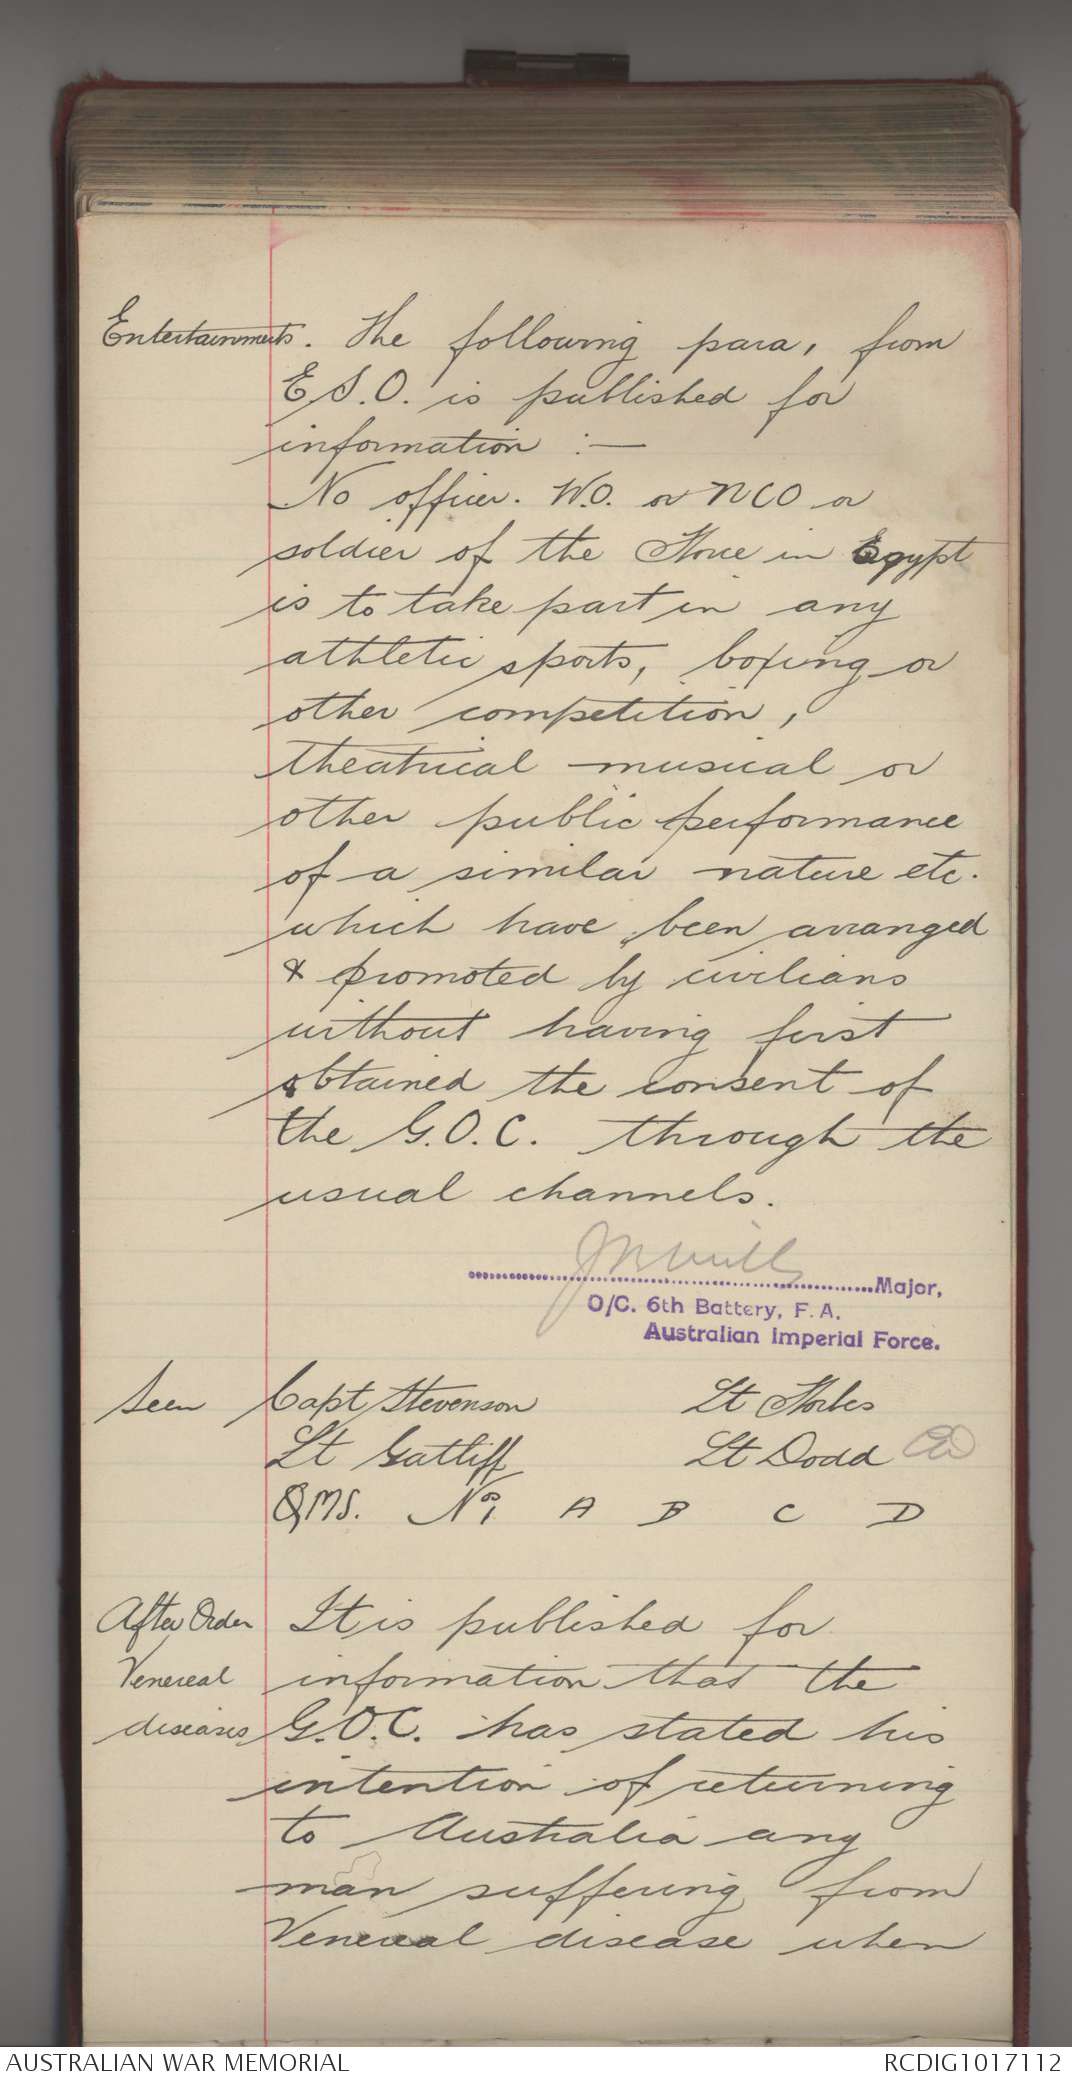 Entertainments. The following para, from
E.S.O. is published for
information :—
No officer. W.O. or NCO or
soldier of the Force in Egypt
is to take part in any
athletic sports, boxing or
other competition,
theatrical musical or
other public performance
of a similar nature etc.
which have been arranged
& promoted by civilians
without having first
obtained the consent of
the G.O.C. through the
usual channels.
Major,
O/C. 6th Battery, F.A.
Australian Imperial Force.
Seen Capt Stevenson Lt Forbes
Lt Gatliff Lt Dodd
QMS. Nos 1 A B C D
After Order It is published for
Venereal information that the
diseases G.O.C. has stated his
intention of returning
to Australia any
man suffering from
Venereal disease when
AUSTRALIAN WAR MEMORIAL RCDIG1017112